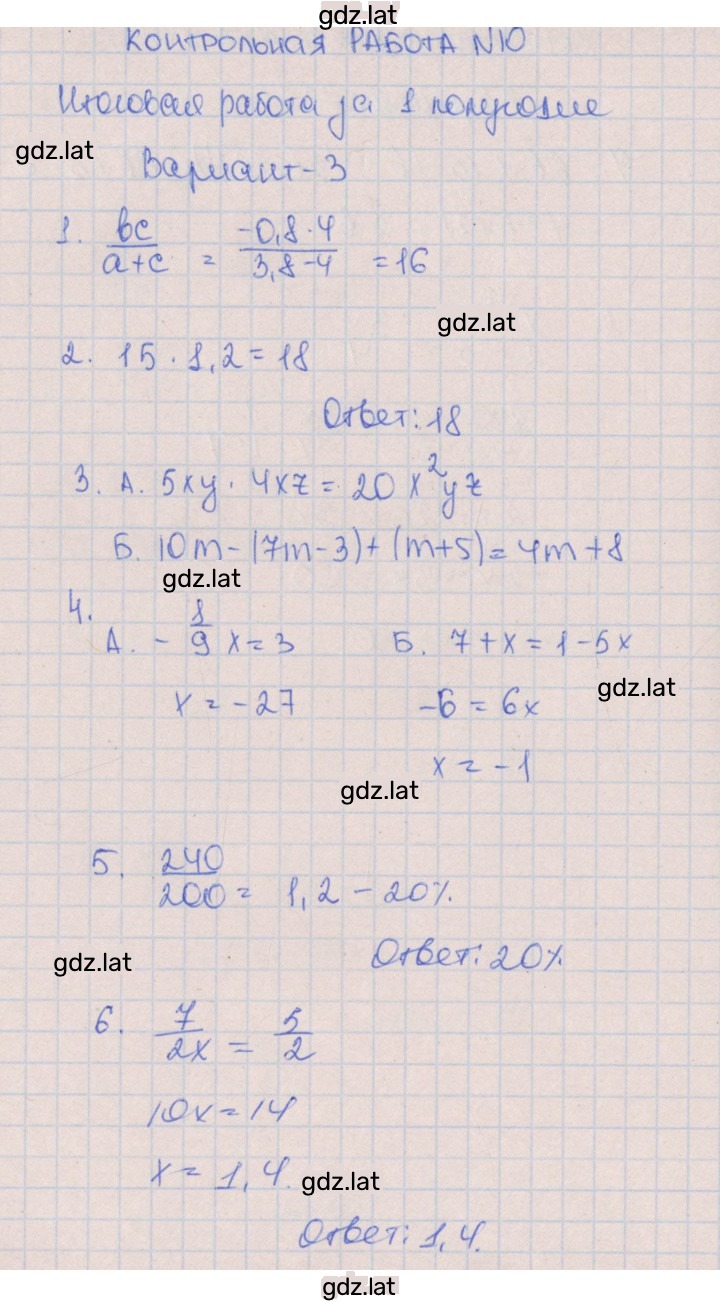 gdz.lat
КОНТРОЛЬНАЯ РАБОТА N10
Итоговая работа за 1 полугодие
gdz.lat
Вариант-3
1. bc/a+c = -0,8·4/3,8-4 = 16
gdz.lat
2. 15 · 1,2 = 18
Ответ: 18
3. А. 5xy · 4xz = 20x²yz
Б. 10m-(7m-3)+(m+5)=4m+8
gdz.lat
4.
А. -1/9 x = 3 Б. 7+x=1-5x
gdz.lat
x = -27 -6 = 6x
x = -1
gdz.lat
5. 240/200 = 1,2 - 20%.
Ответ: 20%
gdz.lat
6. 7/2x = 5/2
10x = 14
x = 1,4.
gdz.lat
Ответ: 1,4.
gdz.lat